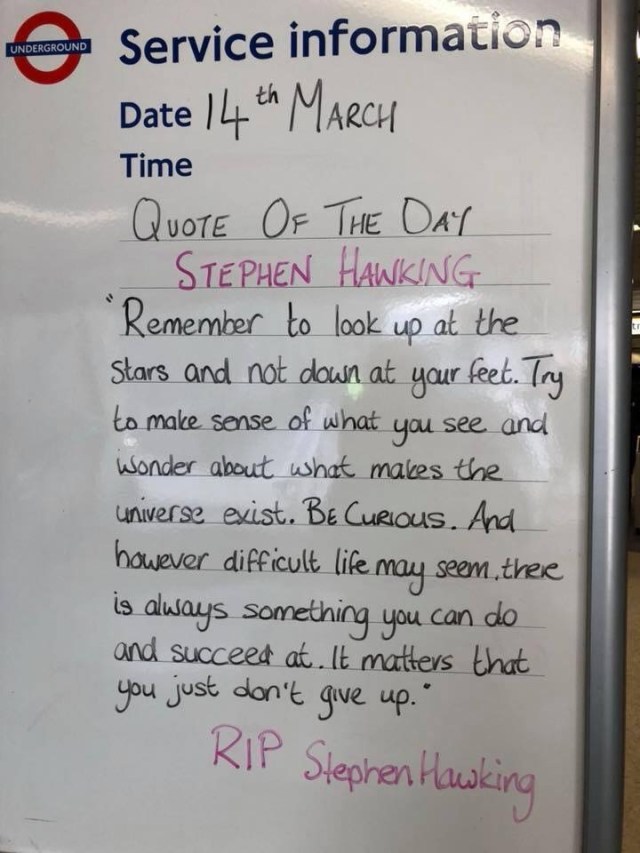 UNDERGROUND
Service information
Date 14th MARCH
Time
QUOTE OF THE DAY
STEPHEN HAWKING
"Remember to look up at the
stars and not down at your feet. Try
to make sense of what you see and
wonder about what makes the
universe exist. BE CURIOUS. And
however difficult life may seem, there
is always something you can do
and succeed at. It matters that
you just don't give up."
RIP Stephen Hawking